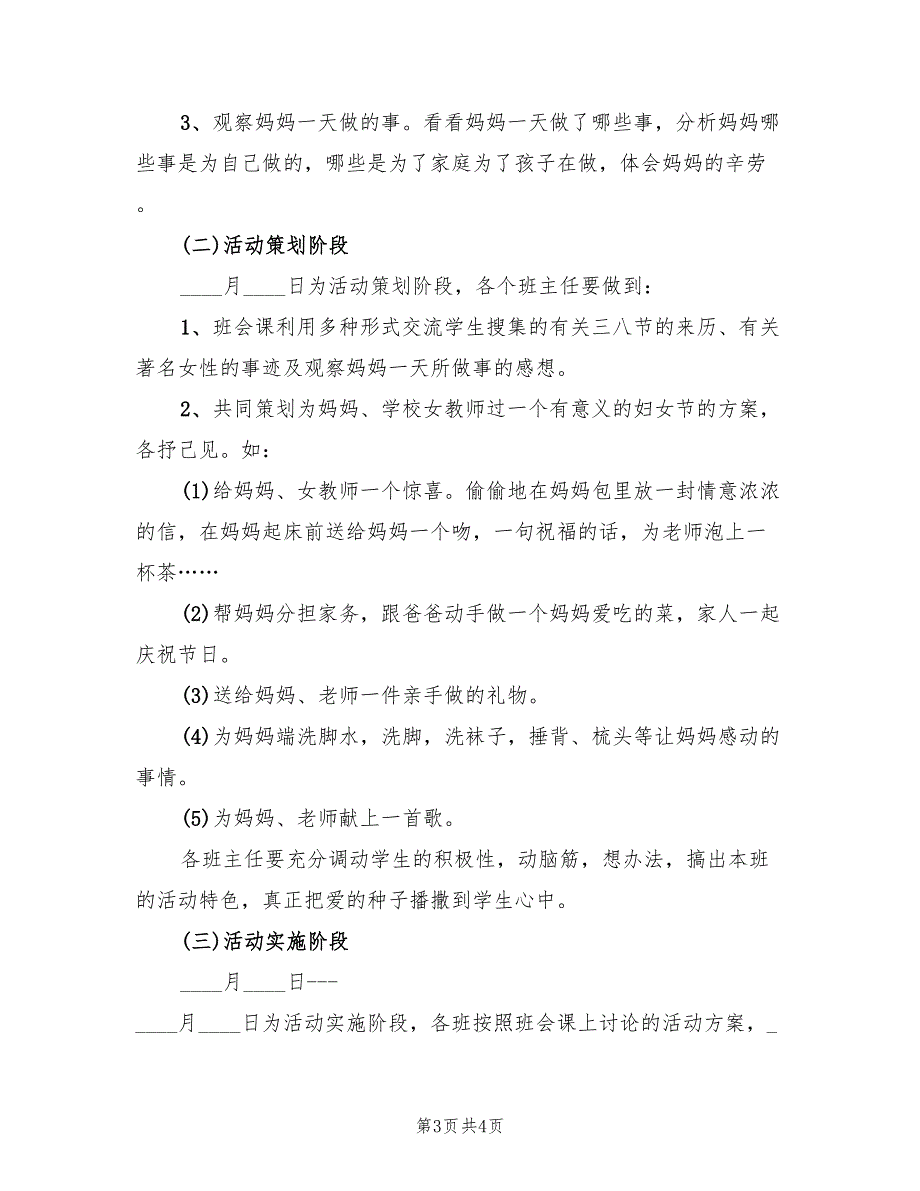 3、观察妈妈一天做的事。看看妈妈一天做了哪些事，分析妈妈哪
些事是为自己做的，哪些是为了家庭为了孩子在做，体会妈妈的辛劳
。
(二)活动策划阶段
____月____日为活动策划阶段，各个班主任要做到：
1、班会课利用多种形式交流学生搜集的有关三八节的来历、有关
著名女性的事迹及观察妈妈一天所做事的感想。
2、共同策划为妈妈、学校女教师过一个有意义的妇女节的方案，
各抒己见。如：
(1)给妈妈、女教师一个惊喜。偷偷地在妈妈包里放一封情意浓浓
的信，在妈妈起床前送给妈妈一个吻，一句祝福的话，为老师泡上一
杯茶……
(2)帮妈妈分担家务，跟爸爸动手做一个妈妈爱吃的菜，家人一起
庆祝节日。
(3)送给妈妈、老师一件亲手做的礼物。
(4)为妈妈端洗脚水，洗脚，洗袜子，捶背、梳头等让妈妈感动的
事情。
(5)为妈妈、老师献上一首歌。
各班主任要充分调动学生的积极性，动脑筋，想办法，搞出本班
的活动特色，真正把爱的种子播撒到学生心中。
(三)活动实施阶段
____月____日---
____月____日为活动实施阶段，各班按照班会课上讨论的活动方案，_
第3页共4页